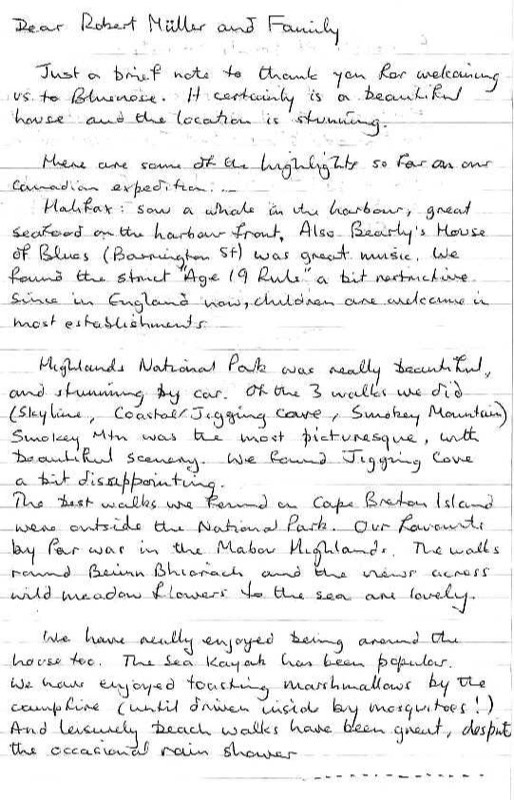 Dear Robert Müller and Family
Just a brief note to thank you for welcoming
us to Bluenose. It certainly is a beautiful
house and the location is stunning.
Here are some of the highlights so far on our
Canadian expedition:...
Halifax: saw a whale in the harbour, great
seafood on the harbour front, Also Bearly's House
of Blues (Barrington St) was great music. We
found the strict "Age 19 Rule" a bit restrictive
since in England now, children are welcome in
most establishments.
Highlands National Park was really beautiful,
and stunning by car. Of the 3 walks we did
(Skyline, Coastal/Jigging Cove, Smokey Mountain)
Smokey Mtn was the most picturesque, with
beautiful scenery. We found Jigging Cove
a bit dissappointing.
The best walks we found on Cape Breton Island
were outside the National Park. Our favourite
by far was in the Mabou Highlands. The walks
round Beinn Bhiorach and the views across
wild meadow flowers to the sea are lovely.
We have really enjoyed being around the
house too. The Sea Kayak has been popular.
We have enjoyed toasting marshmallows by the
campfire (until driven inside by mosquitoes!)
And leisurely beach walks have been great, despite
the occasional rain shower